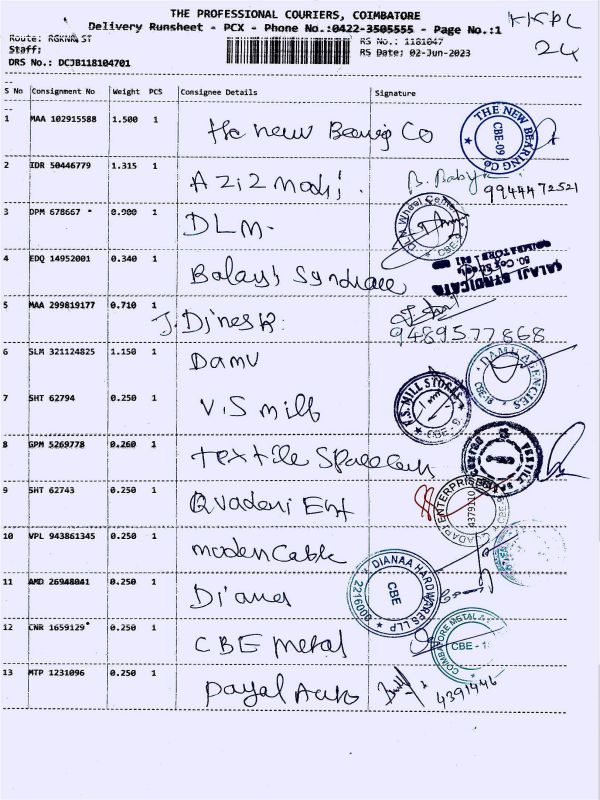 THE PROFESSIONAL COURIERS, COIMBATORE
Delivery Runsheet - PCX - Phone No.:0422-3505555 - Page No.:1
KKPL
24
Route: RGKNR ST
RS No.: 1181047
Staff:
RS Date: 02-Jun-2023
DRS No.: DCJB118104701
S No Consignment No Weight PCS Consignee Details Signature
1 MAA 102915588 1.500 1 the new Bearing Co
THE NEW BEARING CO CBE-09
2 IDR 50446779 1.315 1 Aziz modi. B. Baby
9944472521
3 DPM 678667 0.900 1 DLM.
DLM Wheel CBE
4 EDQ 14952001 0.340 1 Balaji Syndicate
BALAJI SYNDICATE
COIMBATORE
5 MAA 299819177 0.710 1 J. Dinesh
9489577868
6 SLM 321124825 1.150 1 Damu
DAMU AGENCIES CBE-18
7 SHT 62794 0.250 1 V.S mill
V.S. MILL STORES CBE-9
8 GPM 5269778 0.260 1 textile
TEXTILE
9 SHT 62743 0.250 1 Ent
ENTERPRISES 4379110 CBE-9
10 VPL 943861345 0.250 1 modern Cable
11 AMD 26948041 0.250 1 Diana
DIANAA HARDWARES LLP CBE 2219009
12 CNR 1659129 0.250 1 CBE metal
COIMBATORE METAL CBE - 1
13 MTP 1231096 0.250 1 payal Auto
4391446